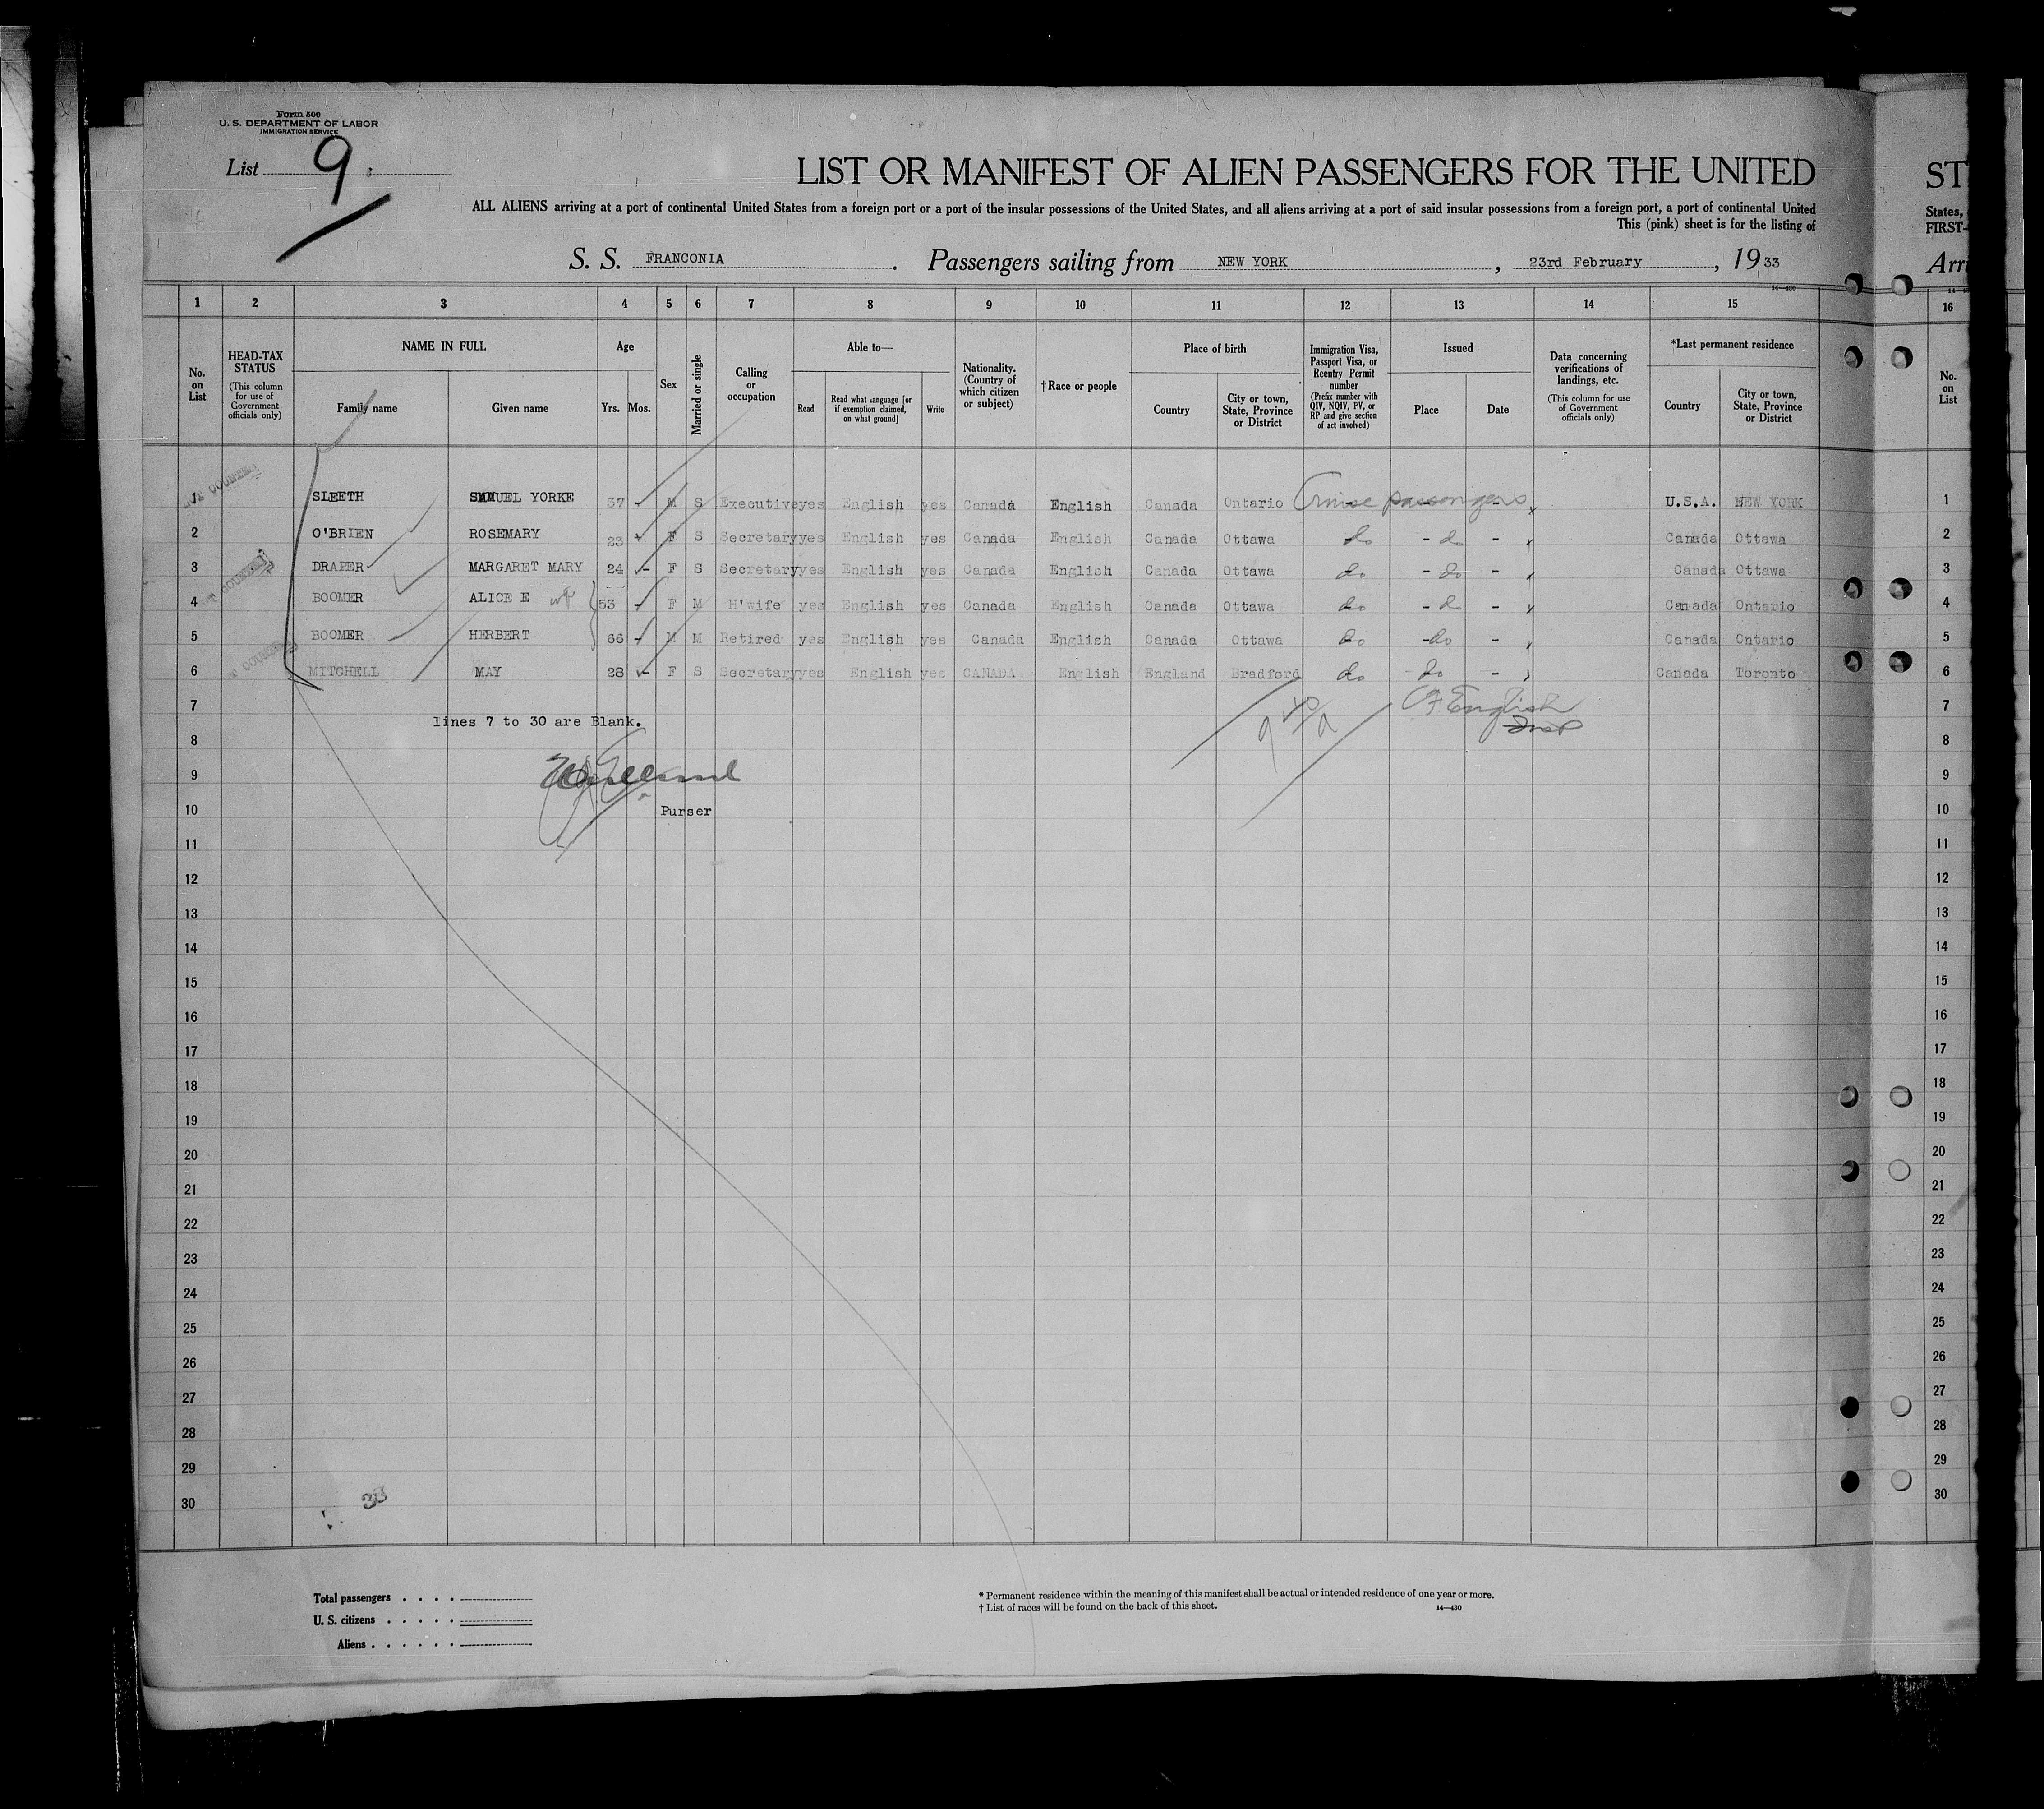 Form 500
U. S. DEPARTMENT OF LABOR
IMMIGRATION SERVICE
List 9
LIST OR MANIFEST OF ALIEN PASSENGERS FOR THE UNITED
ST
ALL ALIENS arriving at a port of continental United States from a foreign port or a port of the insular possessions of the United States, and all aliens arriving at a port of said insular possessions from a foreign port, a port of continental United
States,
This (pink) sheet is for the listing of
FIRST-
S. S. FRANCONIA. Passengers sailing from NEW YORK, 23rd February, 1933
Arri
14—430
1 2 3 4 5 6 7 8 9 10 11 12 13 14 15 16
No. on List
HEAD-TAX STATUS (This column for use of Government officials only)
NAME IN FULL
Family name
Given name
Age
Yrs. Mos.
Sex
Married or single
Calling or occupation
Able to—
Read
Read what language [or if exemption claimed, on what ground]
Write
Nationality. (Country of which citizen or subject)
†Race or people
Place of birth
Country
City or town, State, Province or District
Immigration Visa, Passport Visa, or Reentry Permit number (Prefix number with QIV, NQIV, PV, or RP and give section of act involved)
Issued
Place
Date
Data concerning verifications of landings, etc. (This column for use of Government officials only)
*Last permanent residence
Country
City or town, State, Province or District
No. on List
1 SLEETH SAMUEL YORKE 37 - M S Executive yes English yes Canada English Canada Ontario Cruise passengers U.S.A. NEW YORK 1
2 O'BRIEN ROSEMARY 23 F S Secretary yes English yes Canada English Canada Ottawa do - do - Canada Ottawa 2
3 DRAPER MARGARET MARY 24 - F S Secretary yes English yes Canada English Canada Ottawa do - do - Canada Ottawa 3
4 BOOMER ALICE E wf 53 - F M H'wife yes English yes Canada English Canada Ottawa do - do - Canada Ontario 4
5 BOOMER HERBERT 66 - M M Retired yes English yes Canada English Canada Ottawa do - do - Canada Ontario 5
6 MITCHELL MAY 28 - F S Secretary yes English yes CANADA English England Bradford do - do - Canada Toronto 6
7 lines 7 to 30 are Blank. English Insp 7
8 8
9 9
10 Purser 10
11 11
12 12
13 13
14 14
15 15
16 16
17 17
18 18
19 19
20 20
21 21
22 22
23 23
24 24
25 25
26 26
27 27
28 28
29 29
30 30
Total passengers . . . .
U. S. citizens . . . . .
Aliens . . . . . .
* Permanent residence within the meaning of this manifest shall be actual or intended residence of one year or more.
† List of races will be found on the back of this sheet.
14—430